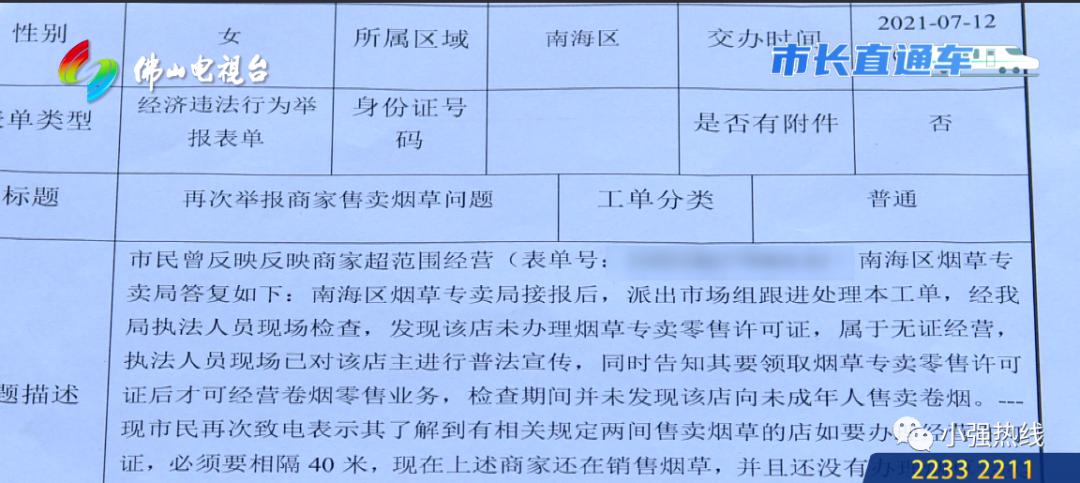 2021-07-12
性别 女 所属区域 南海区 交办时间
市长直通车
佛山电视台
经济违法行为举
报表单
身份证号
码
单类型 是否有附件 否
标题 再次举报商家售卖烟草问题 工单分类 普通
市民曾反映反映商家超范围经营（表单号： 南海区烟草专
卖局答复如下：南海区烟草专卖局接报后，派出市场组跟进处理本工单，经我
局执法人员现场检查，发现该店未办理烟草专卖零售许可证，属于无证经营，
执法人员现场已对该店主进行普法宣传，同时告知其要领取烟草专卖零售许可
题描述 证后才可经营卷烟零售业务，检查期间并未发现该店向未成年人售卖卷烟。---
现市民再次致电表示其了解到有相关规定两间售卖烟草的店如要办
证，必须要相隔 40 米，现在上述商家还在销售烟草，并且还没有
小强热线
2233 2211